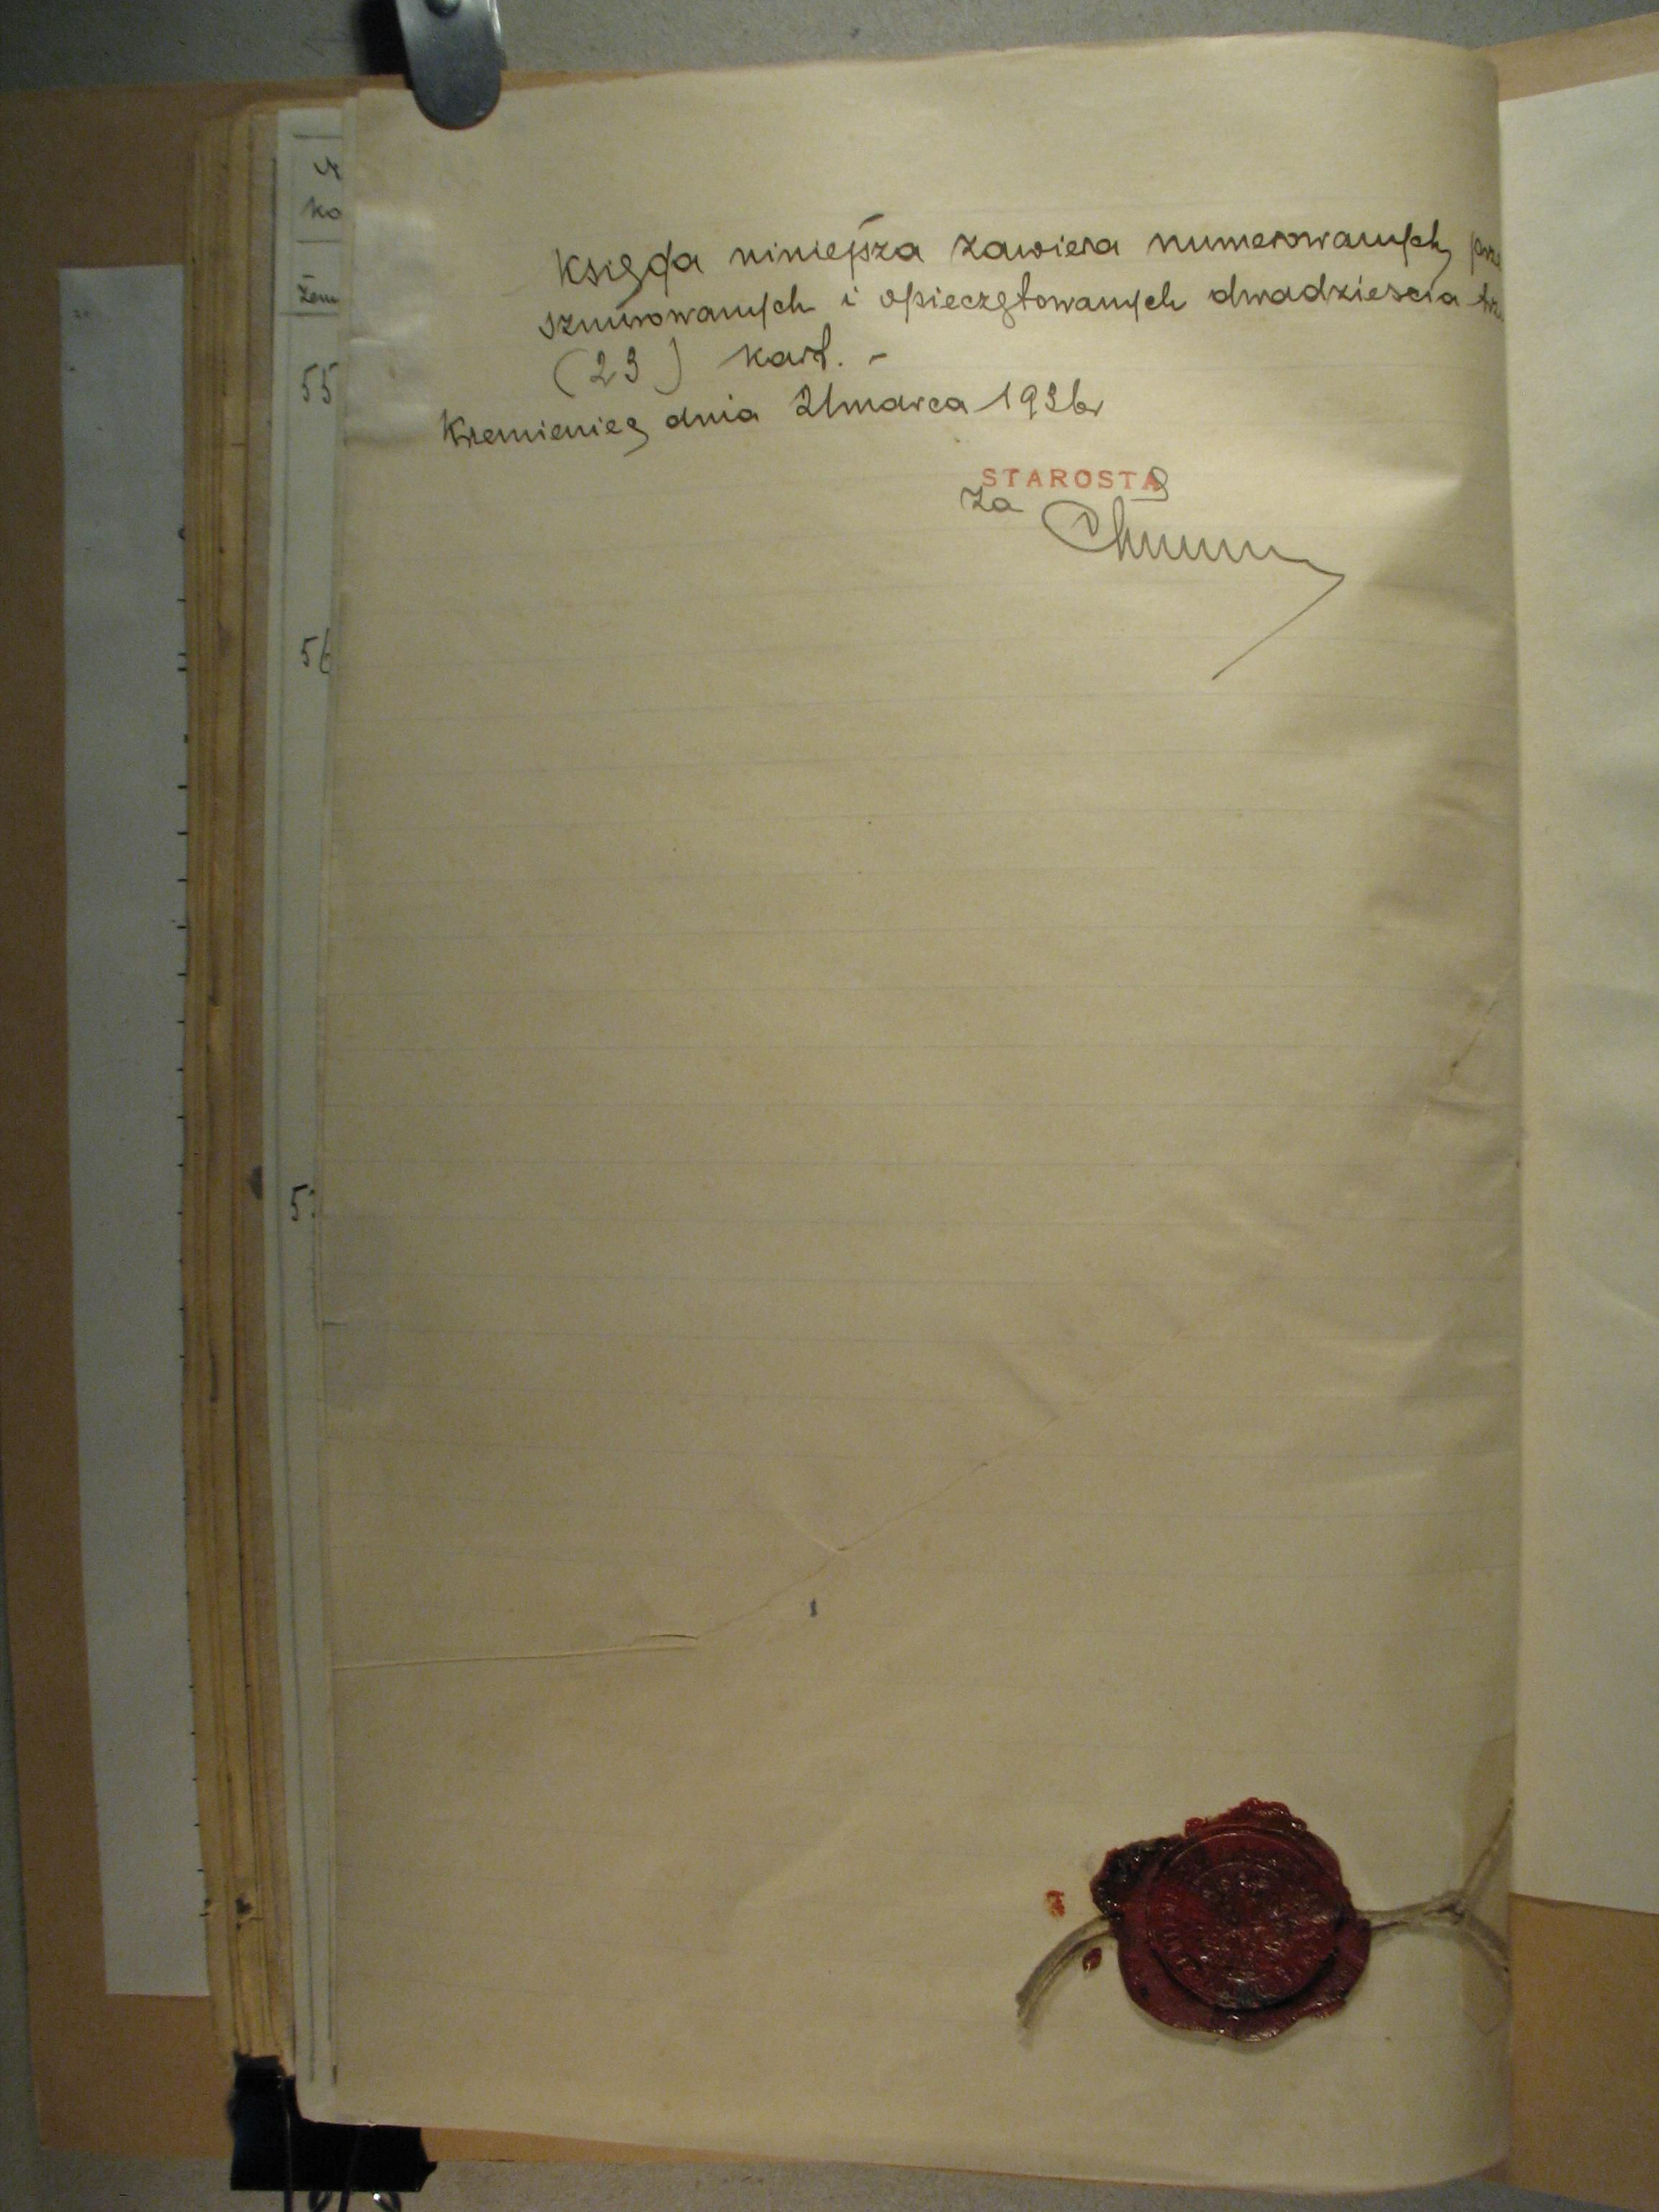 Księga niniejsza zawiera numerowanych, prze
sznurowanych i opieczętowanych dwadzieścia trz
(23) kart. -
Krzemieniec, dnia 21 marca 1936 r
STAROSTA
za
№
ko
żem
55
56
5